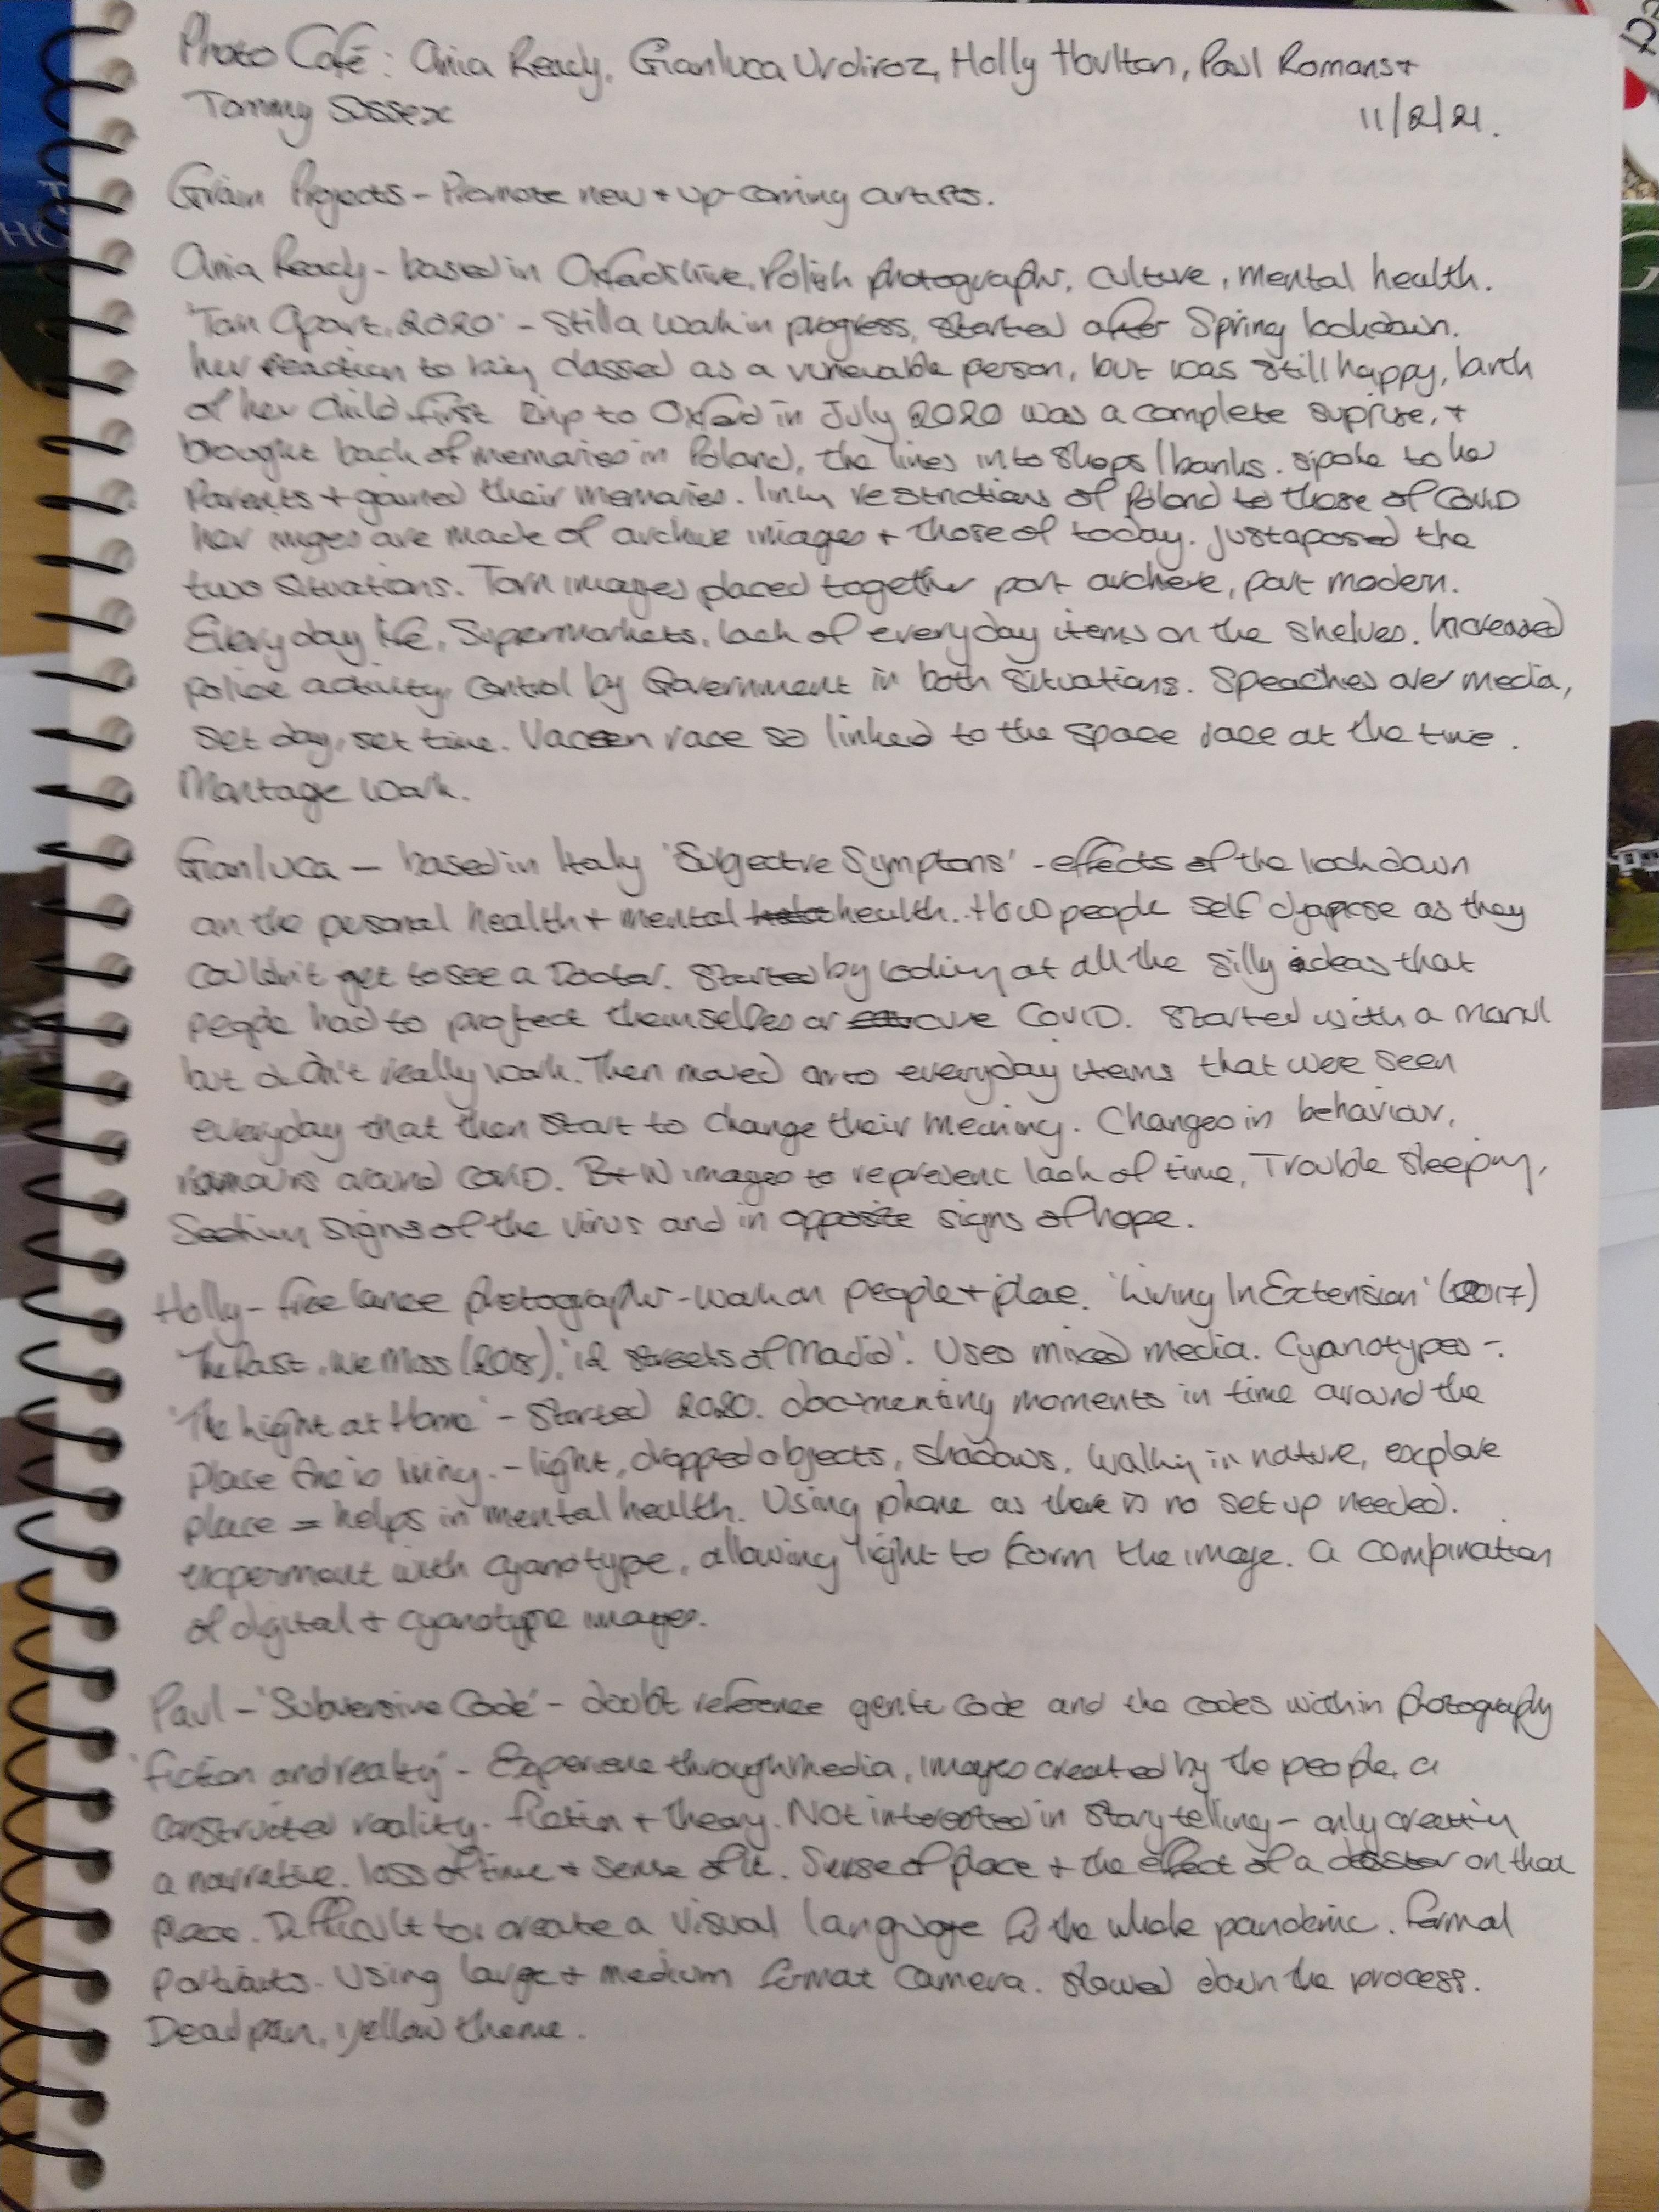 Photo Café: Ania Ready, Gianluca Urdiroz, Holly Houlton, Paul Romans +
Tammy Sussex
11/2/21.
Grain Projects - Promote new + up-coming artists.
Ania Ready - based in Oxfordshire, Polish photographer, culture, mental health.
'Torn Apart, 2020' - Still a work in progress, started after Spring lockdown.
her reaction to being classed as a vunerable person, but was still happy, birth
of her child. first trip to Oxford in July 2020 was a complete suprise, +
brought back of memories in Poland, the lines into shops/banks. spoke to her
Parents + gained their memories. link restrictions of Poland to those of Covid
her images are made of archive images + those of today. justaposed the
two situations. Torn images placed together part archive, part modern.
Everyday life, Supermarkets, lack of everyday items on the shelves. Increased
police activity, control by Government in both situations. Speaches over media,
set day, set time. Vaceen race so linked to the space race at the time.
Montage work.
Gianluca - based in Italy 'Subjective Symptons' - effects of the lockdown
on the personal health + mental health. How people self diagnose as they
couldn't get to see a Doctor. Started by looking at all the silly ideas that
people had to protect themselves or cure Covid. Started with a
but didn't really work. Then moved onto everyday items that were seen
everyday that then start to change their meaning. Changes in behaviour,
rumours around Covid. B+W images to represent lack of time, Trouble sleeping,
Seeking signs of the virus and in opposite signs of hope.
Holly - free lance photographer - work on people + place. 'Living In Extension' (2017)
'The Past We Miss (2018), '12 streets of Madrid'. Uses mixed media. Cyanotypes -.
'The Light at Home' - Started 2020. documenting moments in time around the
place she is living. - light, dropped objects, shadows. Walking in nature, explore
place = helps in mental health. Using phone as there is no set up needed.
experiment with cyanotype, allowing light to form the image. a combination
of digital + cyanotype images.
Paul - 'Subversive Code' - doubt reference genetic code and the codes within photography
'fiction and reality' - Experience through media, images created by the people, a
constructed reality. fiction + theory. Not interested in story telling - only creating
a narrative. loss of time + sense of it. Sense of place + the effect of a disaster on that
place. Difficult to create a visual language for the whole pandemic. formal
portraits. Using large + medium format camera. slowed down the process.
Deadpan, yellow theme.